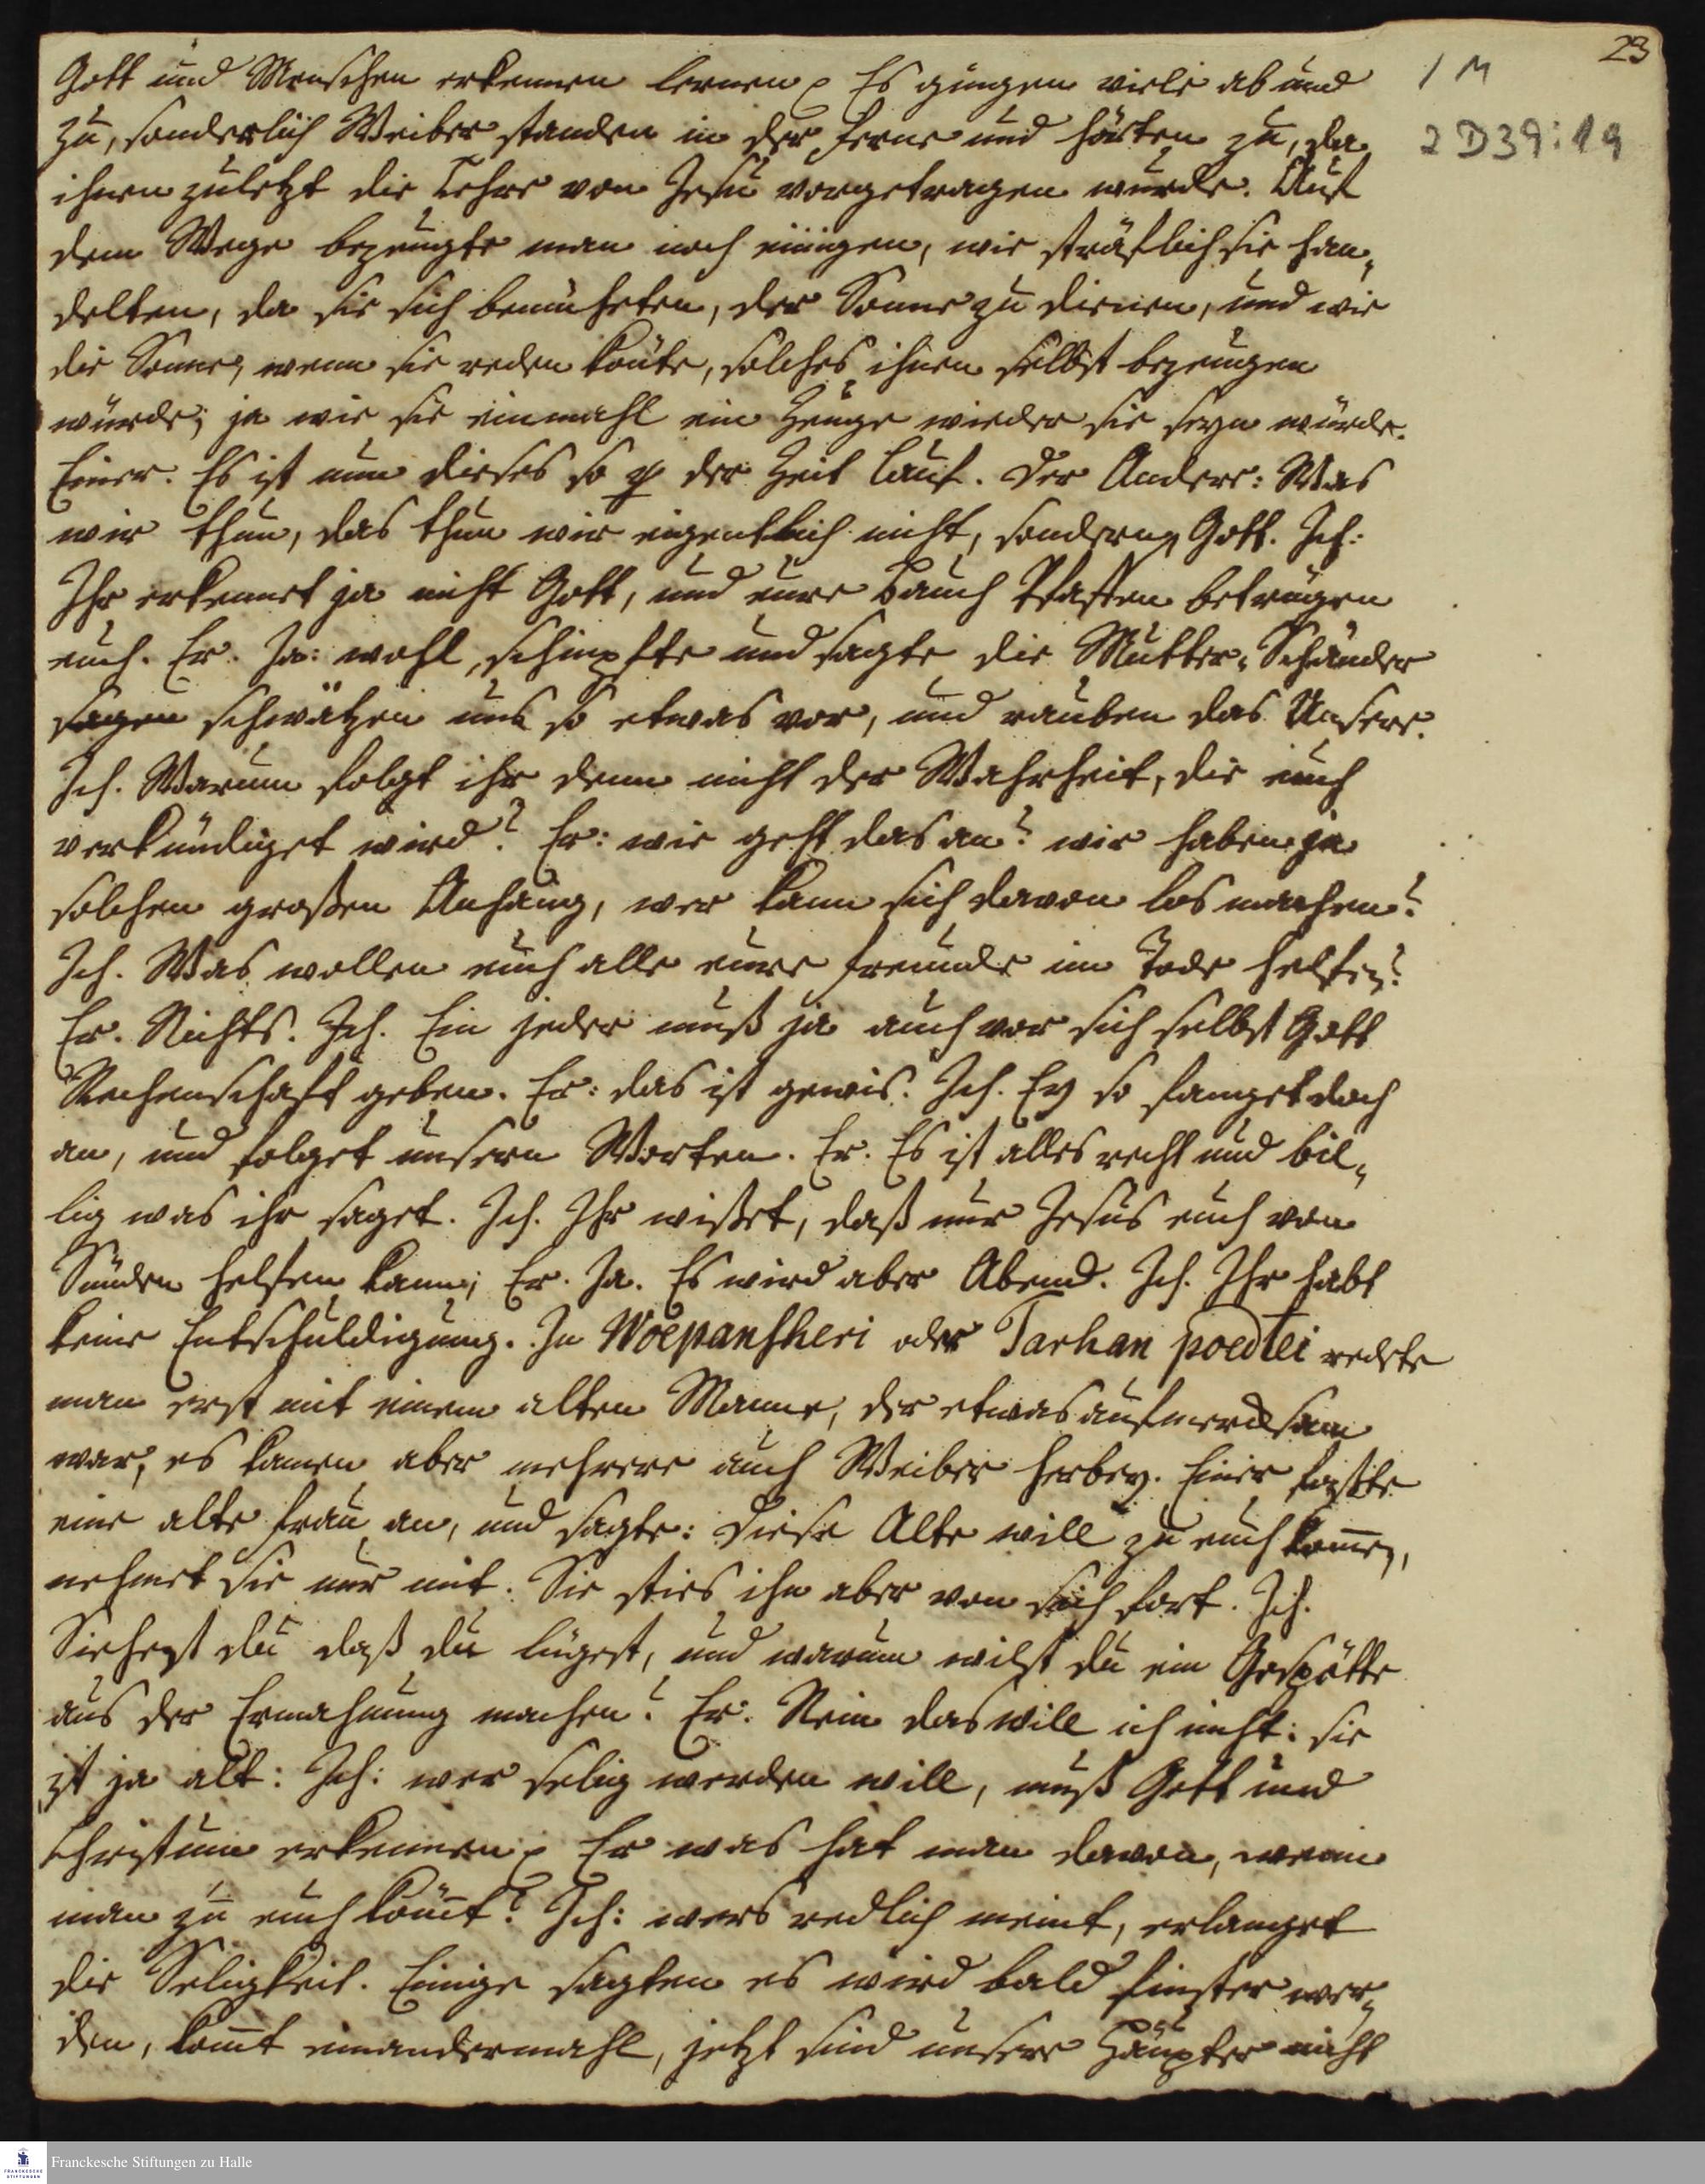 23
1 M
2 D39:19
Gott und Menschen erkennen lernen. Es gingen viele ab und
zu, sonderlich Weiber standen in der ferne und hörten zu, da
ihnen zuletzt die Lehre von Jesu vorgetragen wurde. Auf
dem Wege bezeugte man noch einigen, wie sträflich sie han-
delten, da sie sich bemüheten, der Sonne zu dienen, und wie
die Sonne, wenn sie reden könte, solches ihnen selbst bezeugen
würde; ja wie sie einmahl ein Zeuge wieder sie seyn würde.
Einer. Es ist nun dieses so der Zeit lauf. Der Andere: Was
wir thun, das thun wir eigentlich nicht, sondern Gott. Ich:
Ihr erkennet ja nicht Gott, und eure Bauch Pfaffen betrügen
euch. Er. Ja: wohl, schimpfte und sagte die Mutter-Schänder
sagen schwätzen uns so etwas vor, und rauben das Unsere.
Ich. Warum folgt ihr denn nicht der Wahrheit, die euch
verkündiget wird? Er: wie geht das an? wir haben ja
solchen großen Anhang, wer kann sich davon los machen?
Ich. Was wollen euch alle eure freunde im Tode helfen?
Er. Nichts. Ich. Ein jeder muß ja auch vor sich selbst Gott
Rechenschaft geben. Er: das ist gewis. Ich. Ey so fanget doch
an, und folget unsern Worten. Er. Es ist alles recht und bil-
lig was ihr saget. Ich. Ihr wißet, daß nur Jesus euch von
Sünden helfen kann; Er. Ja. Es wird aber Abend. Ich. Ihr habt
keine Entschuldigung. In Woepansheri oder Tarhan poedtei redete
man erst mit einem alten Manne, der etwas aufmercksam
war, es kamen aber mehrere auch Weiber herbey. Einer faßte
eine alte frau an, und sagte: Diese Alte will zu euch kom̄en,
nehmet sie nur mit. Sie sties ihn aber von sich fort. Ich.
Siehest du daß du lügest, und warum wilst du ein Gespötte
aus der Ermahnung machen? Er. Nein das will ich nicht: sie
ist ja alt: Ich: wer selig werden will, muß Gott und
Christum erkennen. Er was hat man davon, wenn
man zu euch köm̄t? Ich: wers redlich meint, erlanget
die Seligkeit. Einige sagten es wird bald finster wer-
den, kom̄t einandermahl, jetzt sind unsere Häupter nicht
FRANCKESCHE STIFTUNGEN
Franckesche Stiftungen zu Halle